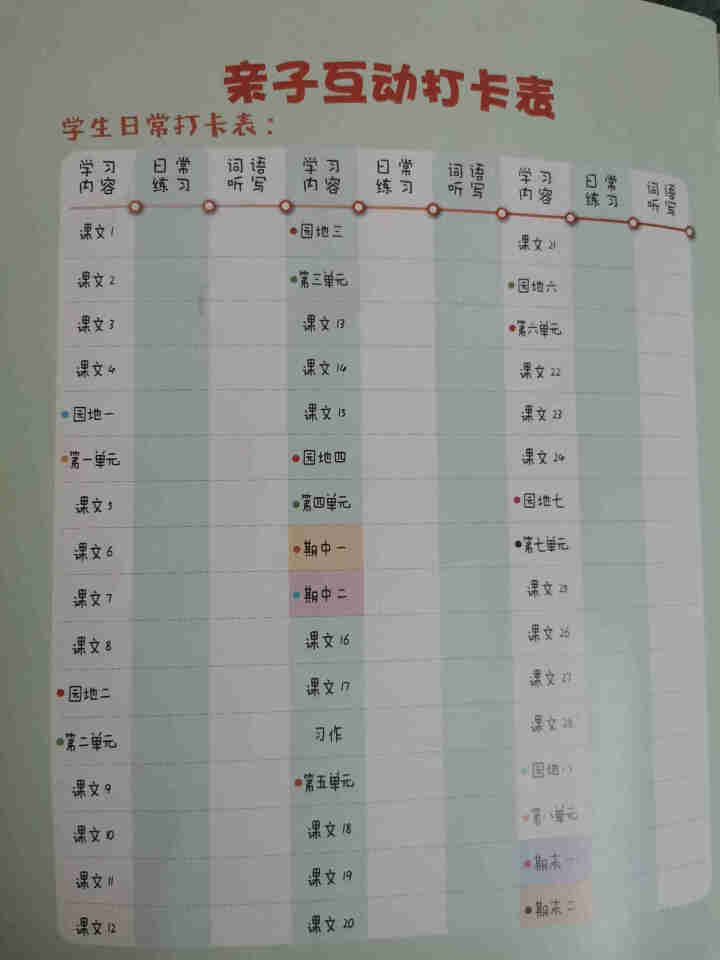 亲子互动打卡表
学生日常打卡表：
学习内容 日常练习 词语听写 学习内容 日常练习 词语听写 学习内容 日常练习 词语听写
课文1
课文2
课文3
课文4
园地一
第一单元
课文5
课文6
课文7
课文8
园地二
第二单元
课文9
课文10
课文11
课文12
园地三
第三单元
课文13
课文14
课文15
园地四
第四单元
期中一
期中二
课文16
课文17
习作
第五单元
课文18
课文19
课文20
课文21
园地六
第六单元
课文22
课文23
课文24
园地七
第七单元
课文25
课文26
课文27
课文28
园地八
第八单元
期末一
期末二